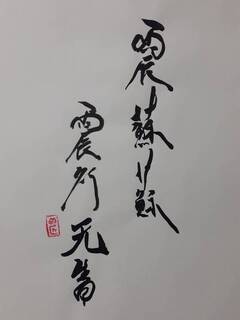 震蘇蘇
震行无眚